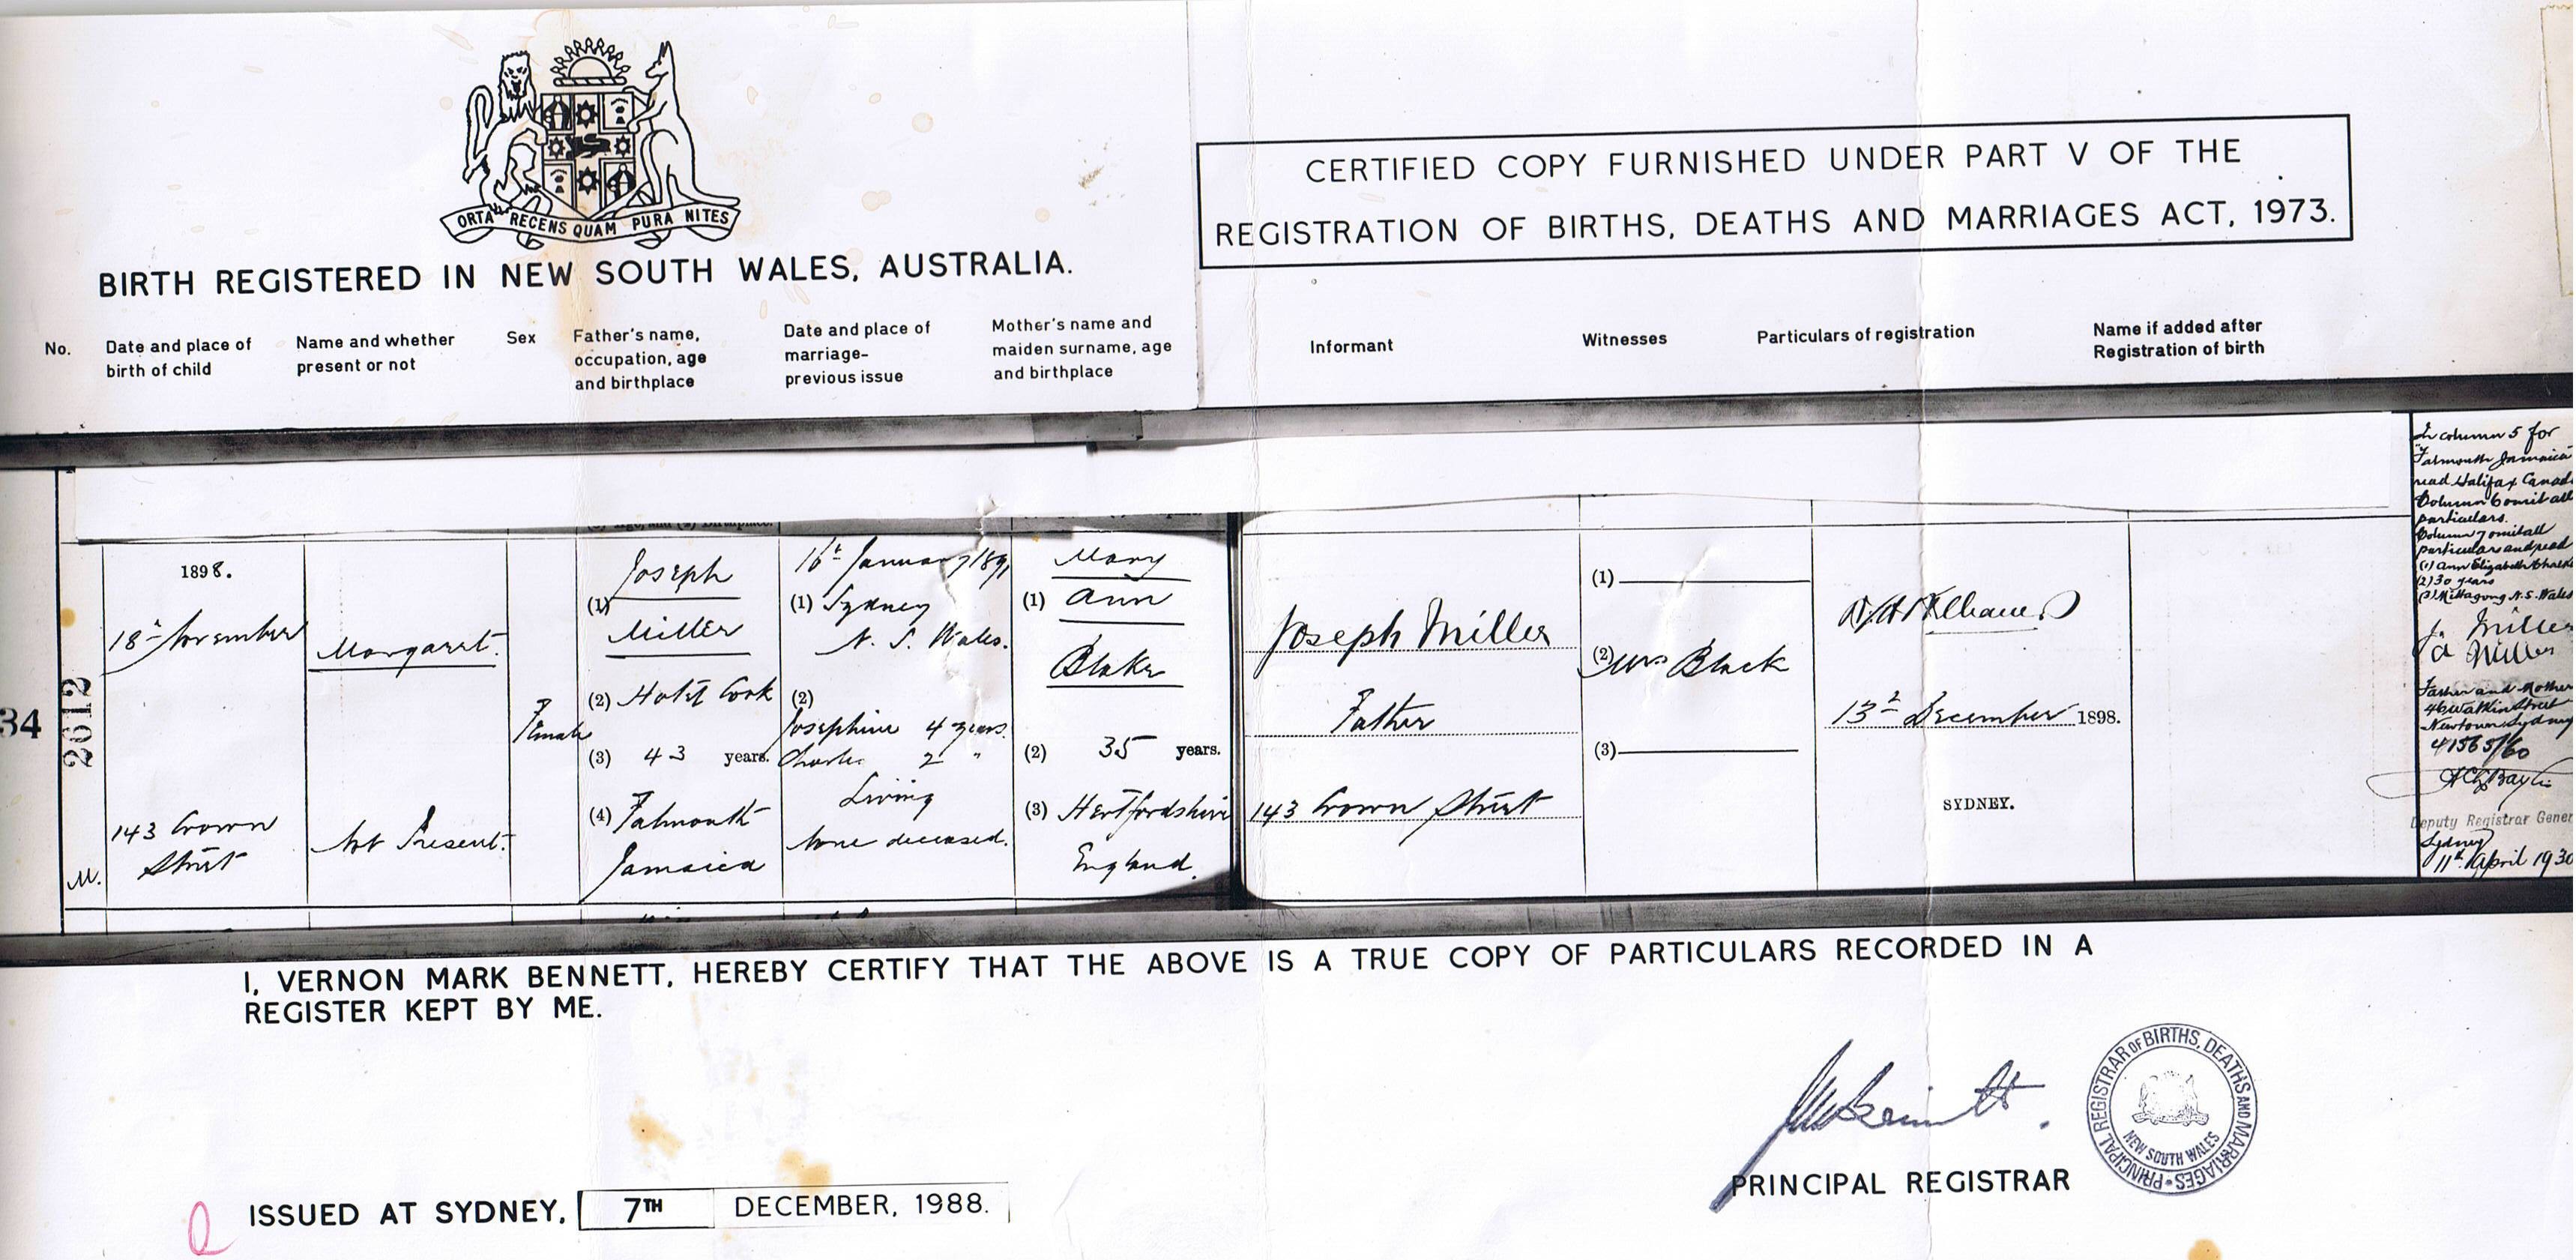 ORTA RECENS QUAM PURA NITES
BIRTH REGISTERED IN NEW SOUTH WALES, AUSTRALIA.
CERTIFIED COPY FURNISHED UNDER PART V OF THE
REGISTRATION OF BIRTHS, DEATHS AND MARRIAGES ACT, 1973.
No.
Date and place of
birth of child
Name and whether
present or not
Sex
Father's name,
occupation, age
and birthplace
Date and place of
marriage-
previous issue
Mother's name and
maiden surname, age
and birthplace
Informant
Witnesses
Particulars of registration
Name if added after
Registration of birth
34
2612
M.
1898.
18th November
143 Crown
Street
Margaret.
Not Present.
Female
Joseph
(1)
Miller
(2) Hotel Cook
(3) 43 years.
(4) Falmouth
Jamaica
16th January 1891
(1) Sydney
N. S. Wales.
(2)
Josephine 4 years.
Charles 2 "
Living
None deceased.
Mary
(1) Ann
Blake
(2) 35 years.
(3) Hertfordshire
England.
Joseph Miller
Father
143 Crown Street
(1)
(2) Mrs Black
(3)
13th December 1898.
SYDNEY.
In column 5 for
"Falmouth Jamaica"
read Halifax Canada
Column 6 omit all
particulars.
Column 7 omit all
particulars and read
(1) Ann Elizabeth
(2) 30 years
(3) Mittagong N.S. Wales
J. Miller
A Miller
Father and Mother
46 Watkin Street
Newtown Sydney
41565/60
Deputy Registrar Gener
Sydney
11th April 1930
I, VERNON MARK BENNETT, HEREBY CERTIFY THAT THE ABOVE IS A TRUE COPY OF PARTICULARS RECORDED IN A
REGISTER KEPT BY ME.
PRINCIPAL REGISTRAR
PRINCIPAL REGISTRAR OF BIRTHS, DEATHS AND MARRIAGES
NEW SOUTH WALES
ISSUED AT SYDNEY, 7TH DECEMBER, 1988.